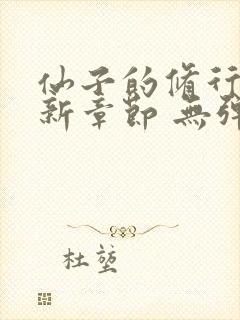 仙子的脩行
新章節 無彈
杜堃